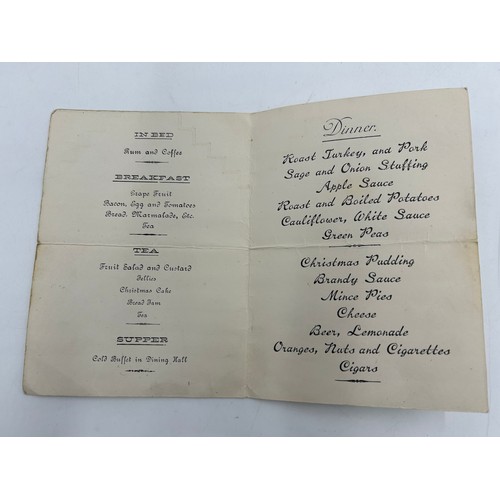 IN BED
Rum and Coffee
BREAKFAST
Grape Fruit
Bacon, Egg and Tomatoes
Bread, Marmalade, Etc.
Tea
TEA
Fruit Salad and Custard
Jellies
Christmas Cake
Bread Jam
Tea
SUPPER
Cold Buffet in Dining Hall
Dinner.
Roast Turkey, and Pork
Sage and Onion Stuffing
Apple Sauce
Roast and Boiled Potatoes
Cauliflower, White Sauce
Green Peas
Christmas Pudding
Brandy Sauce
Mince Pies
Cheese
Beer, Lemonade
Oranges, Nuts and Cigarettes
Cigars